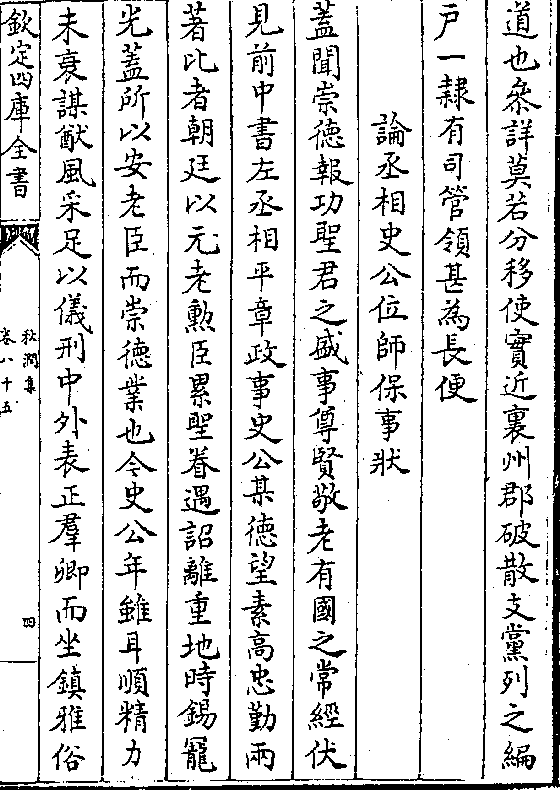 道也叅詳莫若分移使實近裏州郡破散支黨列之編
戸一隷有司管領甚為長便
論丞相史公位師保事狀
蓋聞崇德報功聖君之盛事尊賢敬老有國之常經伏
見前中書左丞相平章政事史公某德望素高忠勤兩
著比者朝廷以元老勲臣累聖眷遇詔離重地時錫寵
光蓋所以安老臣而崇德業也今史公年雖耳順精力
未衰謀猷風采足以儀刑中外表正羣卿而坐鎮雅俗
欽定四庫全書
秋澗集
卷八十五
四